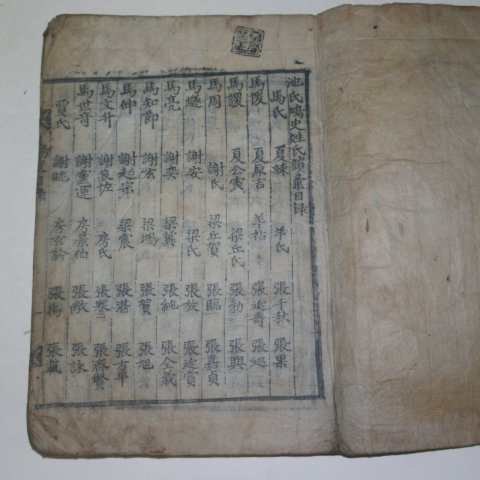 池氏鴻史姓氏韻彙目錄
馬氏 夏竦 羊氏 張千秋 張果
馬援 夏原吉 羊祜 張延壽 張妣
馬謖 夏公寅 梁丘氏 張勃 張興
馬周 謝氏 梁丘賀 張臨 張嘉貞
馬燧 謝安 梁氏 張放 張延賞
馬亮 謝奕 梁冀 張純 張全義
馬知節 謝玄 梁鴻 張奮 張旭
馬伸 謝超宗 梁震 張蒼 張士華
馬文升 謝良佐 房氏 張騫 張齊賢
馬世奇 謝靈運 房景伯 張敞 張詠
賈氏 謝眺 房玄齡 張禹 張載